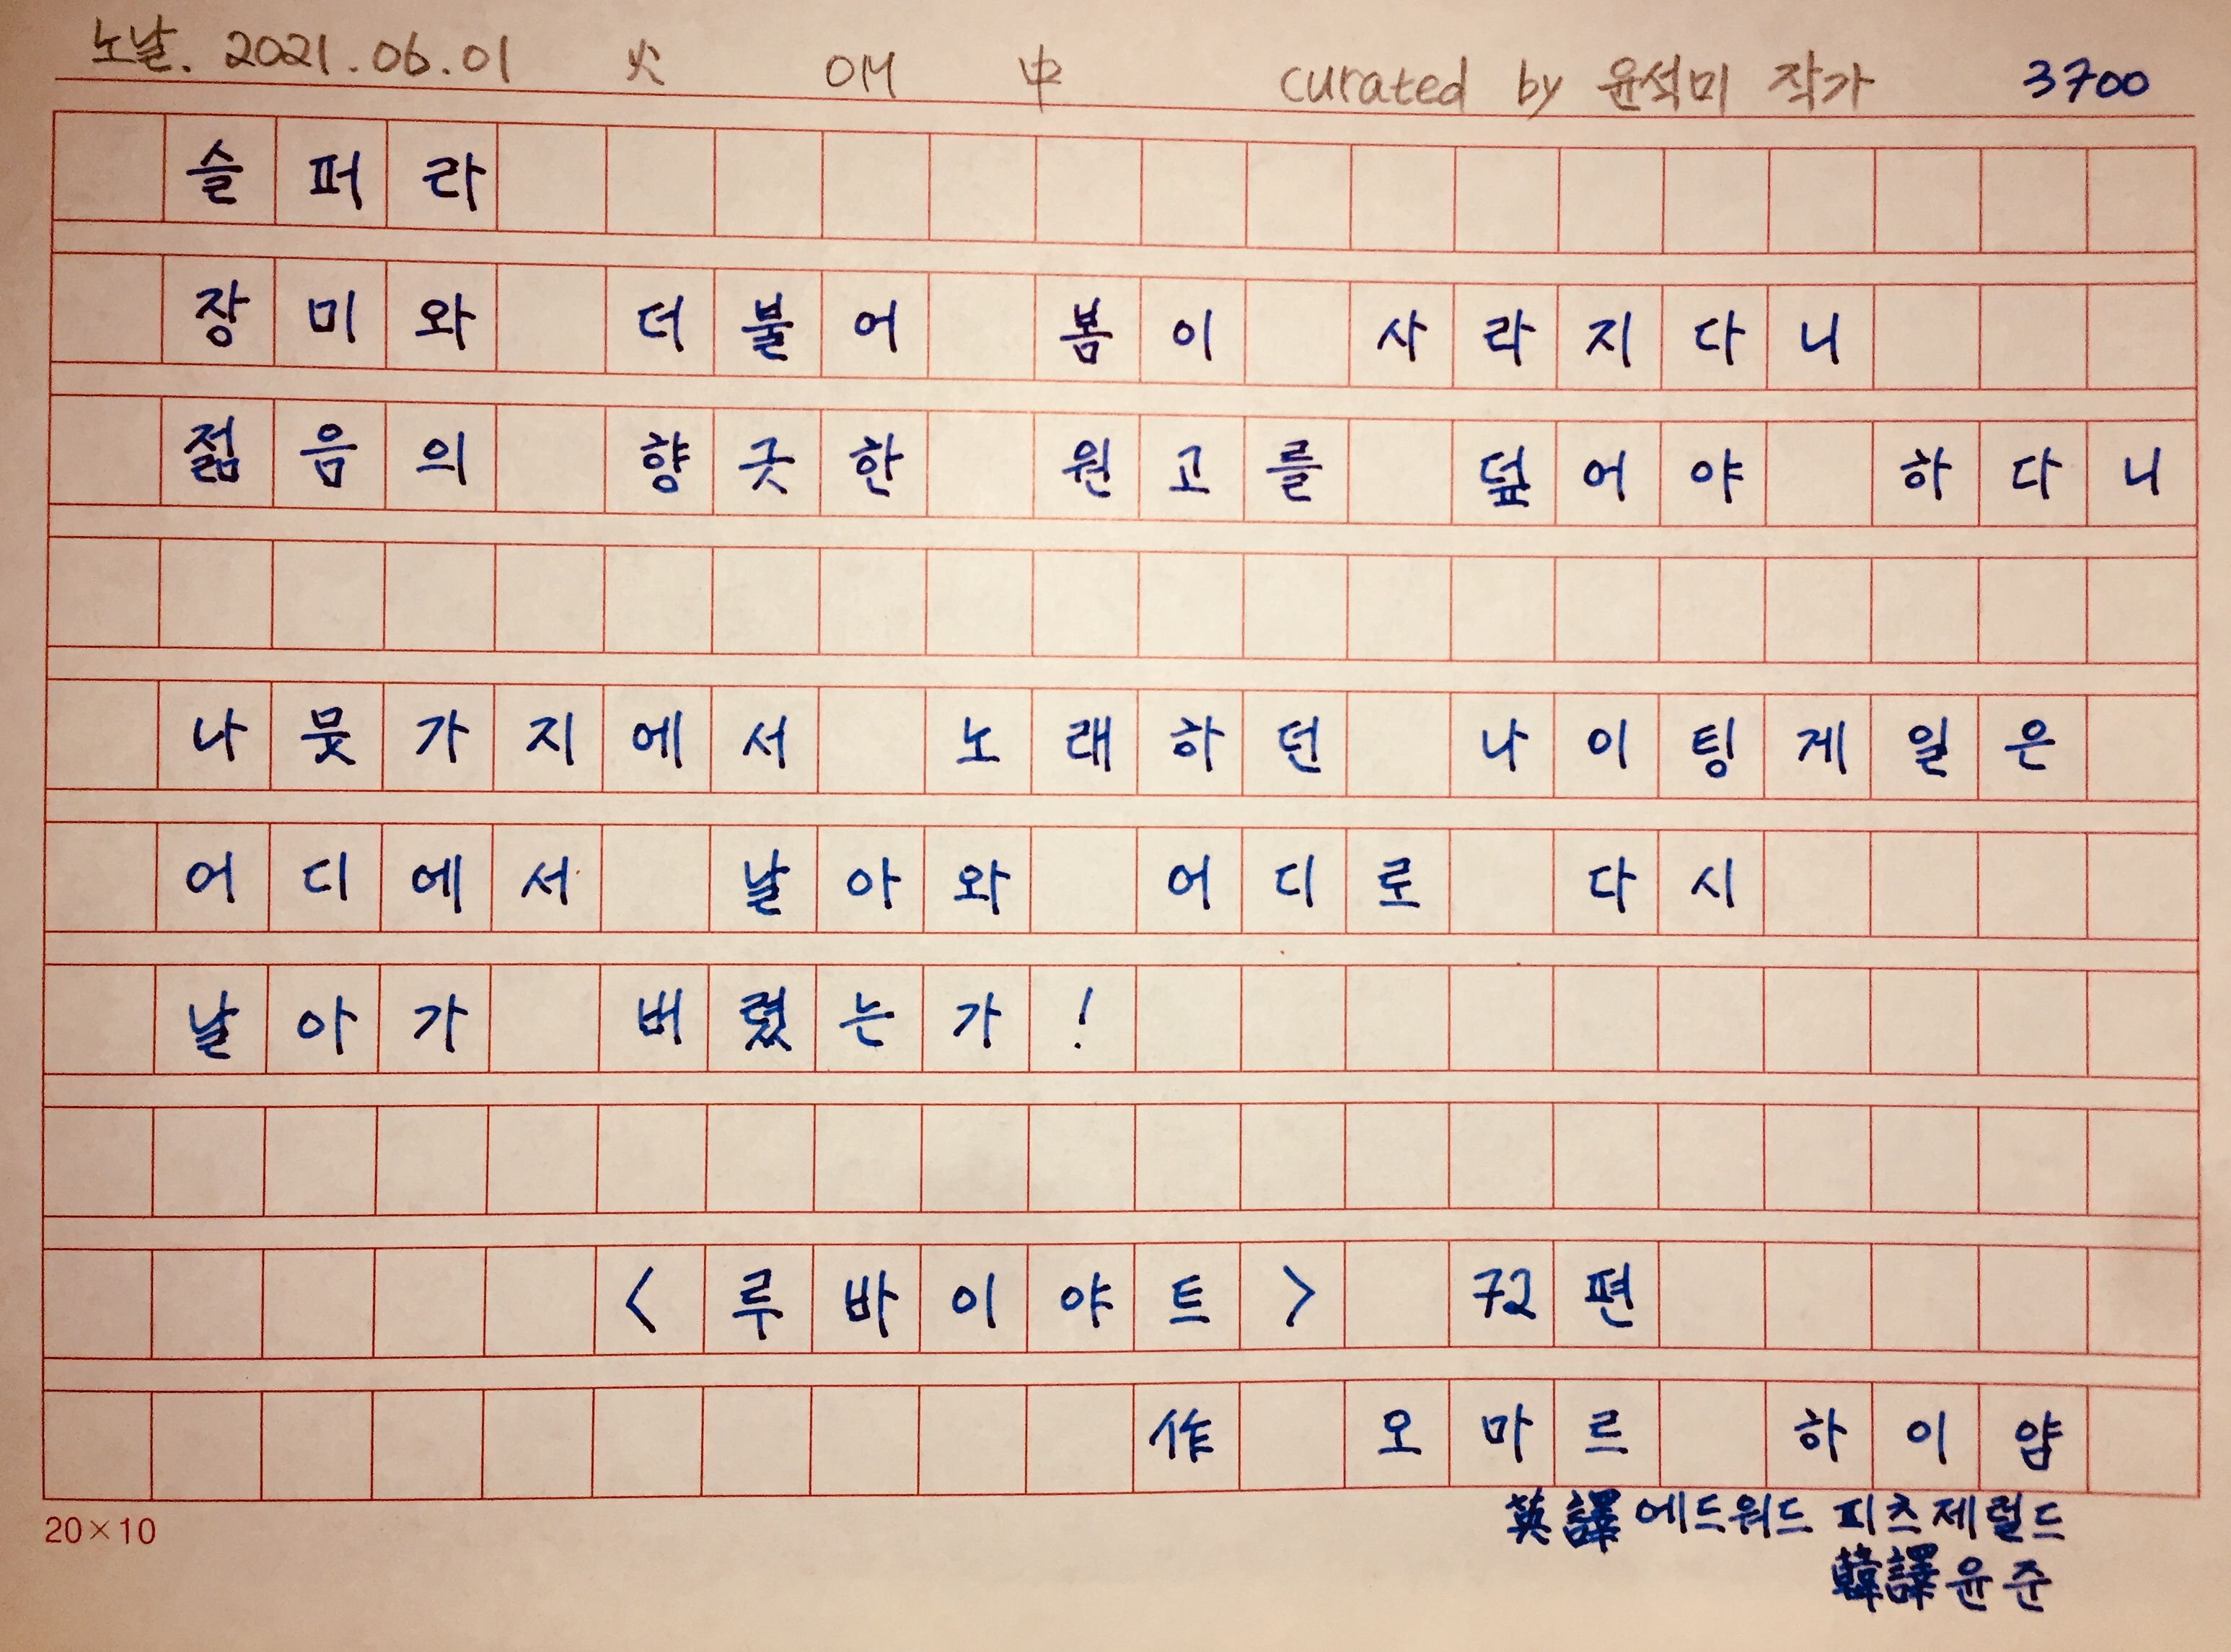 노날. 2021.06.01 火 OM 中 curated by 윤석미 작가 3700
슬퍼라
장미와 더불어 봄이 사라지다니
젊음의 향긋한 원고를 덮어야 하다니
나뭇가지에서 노래하던 나이팅게일은
어디에서 날아와 어디로 다시
날아가 버렸는가!
<루바이야트> 72편
作 오마르 하이얌
20×10
英譯 에드워드 피츠제럴드
韓譯 윤준